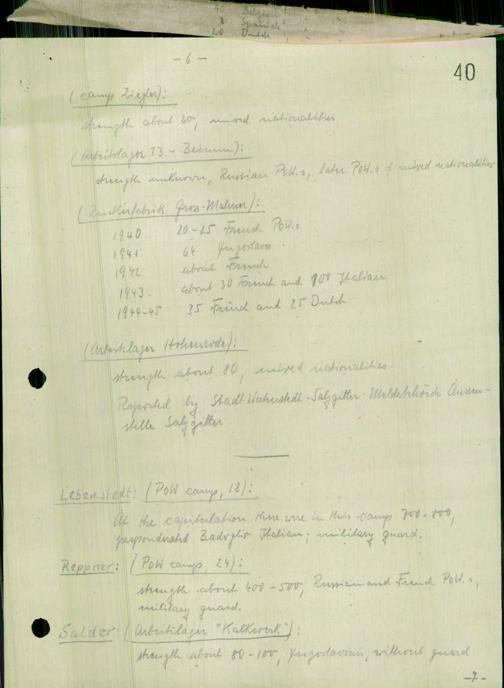 Spanish
20 Dutch
- 6 -
40
(Camp Ziegler):
strength about 20, mixed nationalities
(Arbeitslager 13 - Beinum):
strength unknown, Russian PoW.s, later PoW.s of mixed nationalities
Gross-Mahner):
1940 20-25 French PoW.s
1941 64 Yugoslavs
1942 about French
1943. about 30 French and 100 Italian
1944-45 35 French and 25 Dutch
(Arbeitslager Hohenrode):
strength about 80, mixed nationalities
Reported by Stadt Watenstedt-Salzgitter-Meldebehörde Aussen-
stelle Salzgitter
Lebenstedt: (PoW camp, 18):
At the capitulation there were in this camp 700-800,
Badoglio Italian; military guard.
Reppner: (PoW camp, 24):
strength about 400-500, Russian and French PoW.s,
military guard.
Salder: (Arbeitslager "Kalkwerk"):
strength about 80-100, Yugoslavian, without guard
-7-